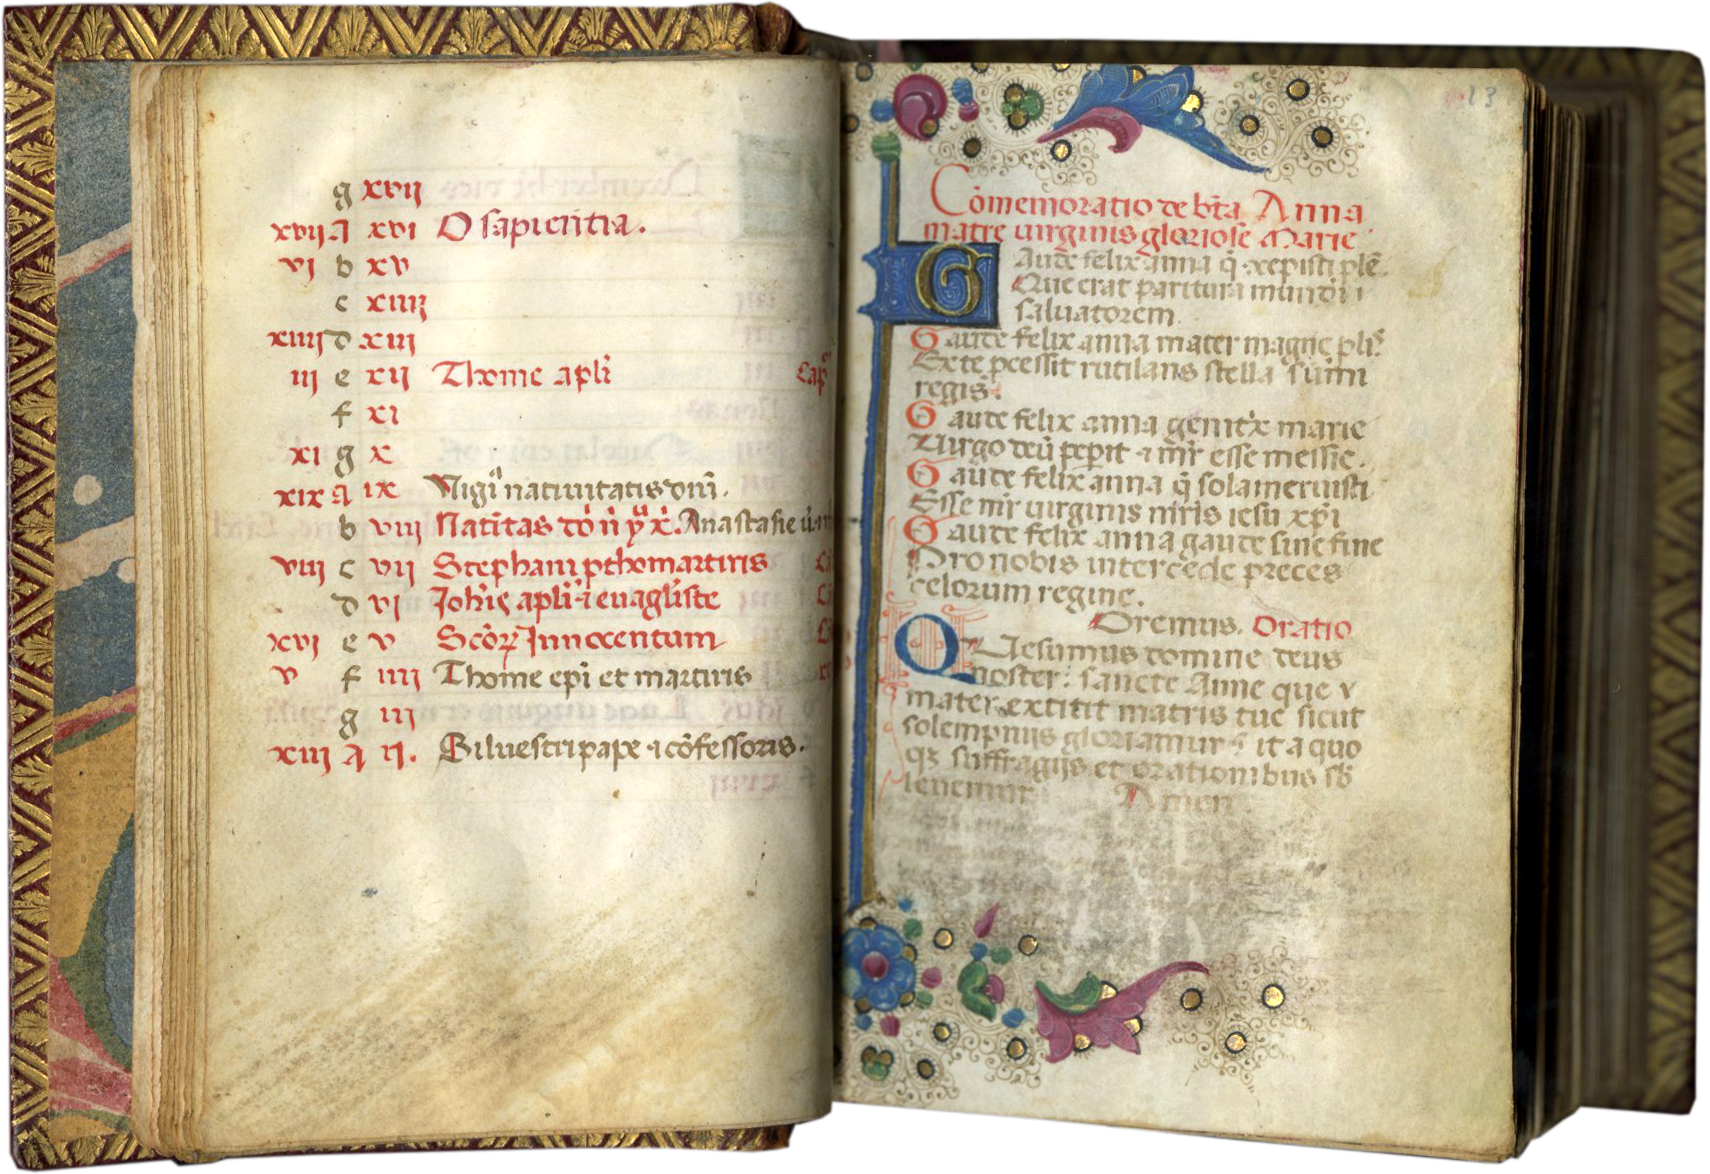 g xvii
xvii A xvi O sapientia.
vi b xv
c xiiii
xiiii d xiii
iii e xii Thome apli Cap
f xi
xi g x
xix A ix Vigi natiuitatis dni.
b viii Natitas do ñ y x. Anastasie
viii c vii Stephani pthomartiris
d vi Johis apli ⁊ euagliste
xvi e v Scoꝝ Innocentum
v f iiii Thome epi et martiris
g iii
xiii A ii. Siluestri pape ⁊ cōfessoris.
13
Cōmemoratio de bta Anna
matre uirginis gloriose Marie
Gaude felix anna q̄ cepisti plē
Que erat paritura mundi
saluatorem
Gaude felix anna mater magne plis
Ex te pcessit rutilans stella sūmi
regis.
Gaude felix anna genitx marie
Uirgo deū peperit ⁊ mr̄ esse messie.
Gaude felix anna q̄ sola meruisti
Esse mr̄ uirginis mr̄is iesu xp̄i
Gaude felix anna gaude sine fine
Pro nobis intercede preces
celorum regine.
Oremus. Oratio
Quesumus domine deus
noster: sancte Anne que v
mater extitit matris tue sicut
solempniis gloriamur ita quo
qꝫ suffragiis et orationibus sb
leuemur Amen